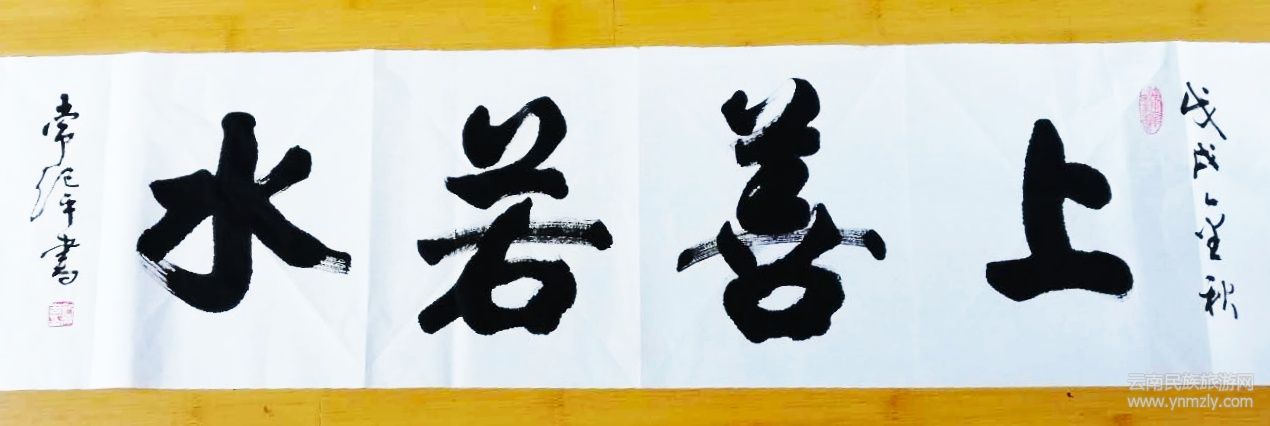 戊戌金秋
上善若水
常纪平書
云南民族旅游网
www.ynmzly.com